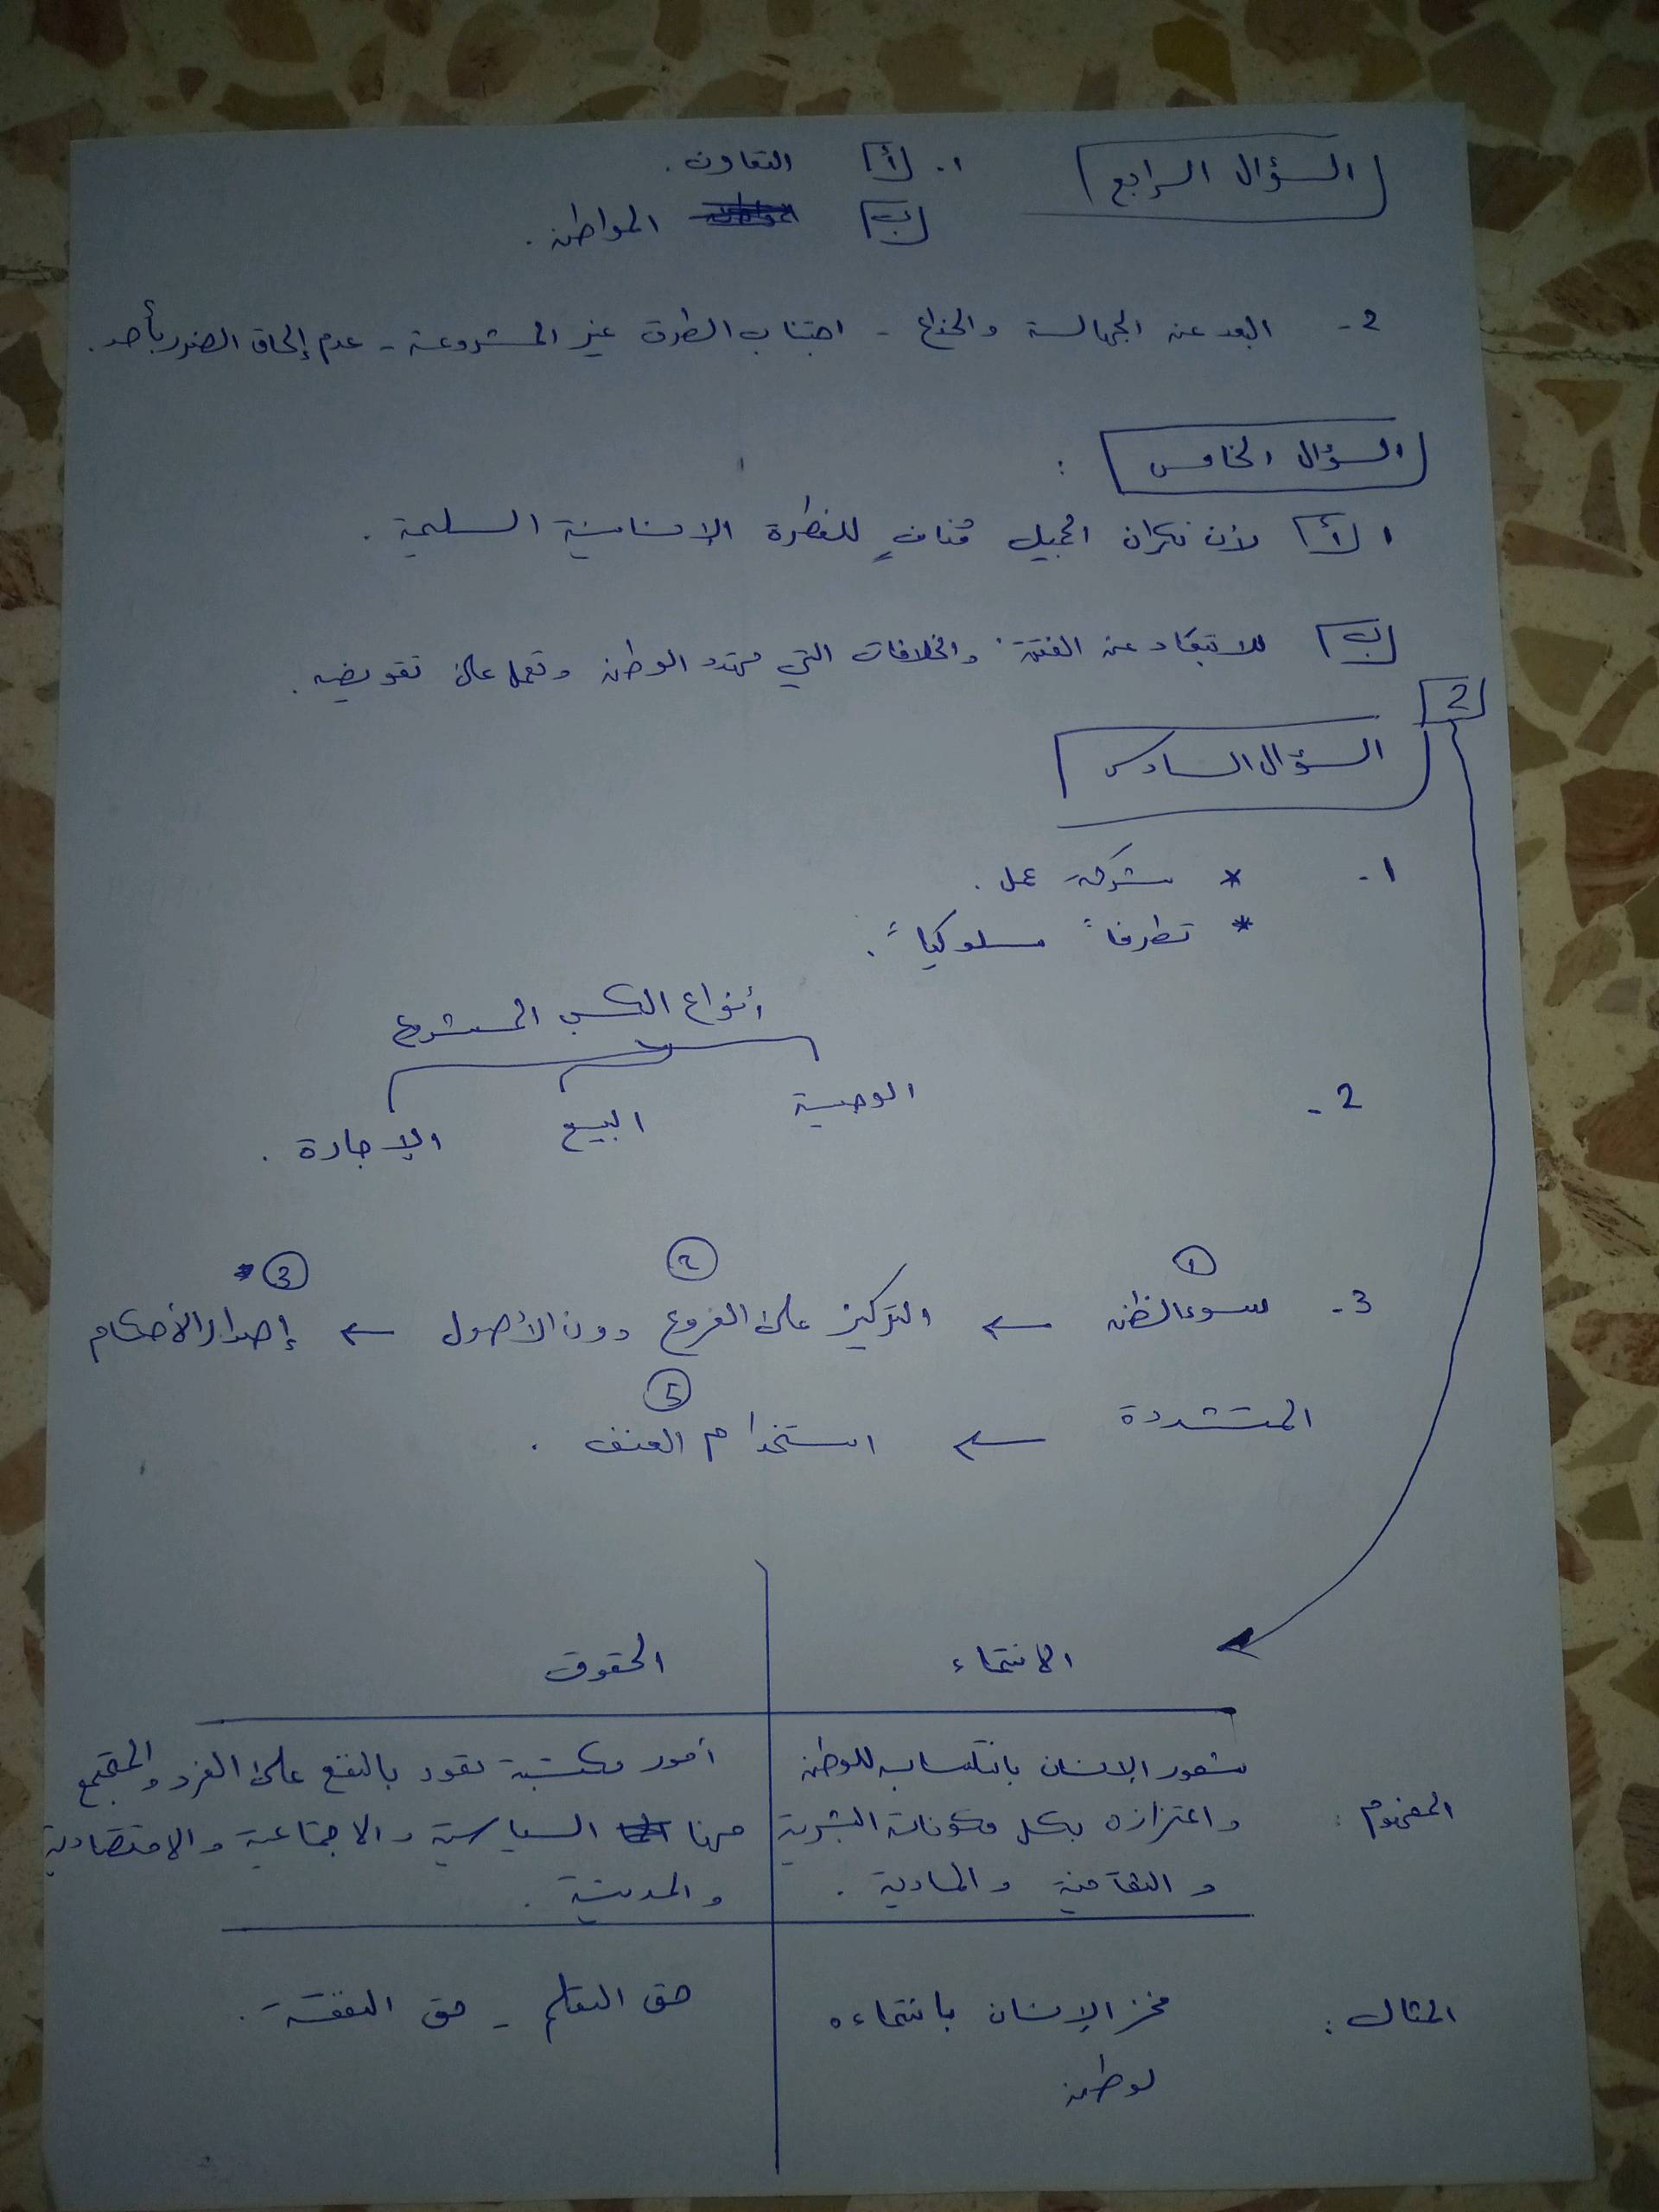 السؤال الرابع
1. أ التعاون.
ب المواطن.
2- البعد عن الجهالة والخداع - اجتناب الطرق غير المشروعة - عدم إلحاق الضرر بأحد.
السؤال الخامس :
1 أ لأن نكران الجميل منافٍ للفطرة الإنسانية السليمة.
ب للابتعاد عن الفتن والخلافات التي تهدد الوطن وتعمل على تقويضه.
2
السؤال السادس
1- * شركة عمل.
* تطرفاً سلوكياً.
أنواع الكسب المشروع
2- الوصية البيع الإجارة.
1 2 3
3- سوء الظن ← التركيز على الفروع دون الأصول ← إصدار الأحكام
5
المتشددة ← استخدام العنف.
الانتماء الحقوق
المفهوم: شعور الإنسان بانتسابه للوطن أمور مكتسبة تعود بالنفع على الفرد والمجتمع
واعتزازه بكل مكوناته البشرية منها السياسية والاجتماعية والاقتصادية
والثقافية والمادية. والمدنية.
المثال: فخر الإنسان بانتماءه حق التعلم - حق النفقة.
لوطن